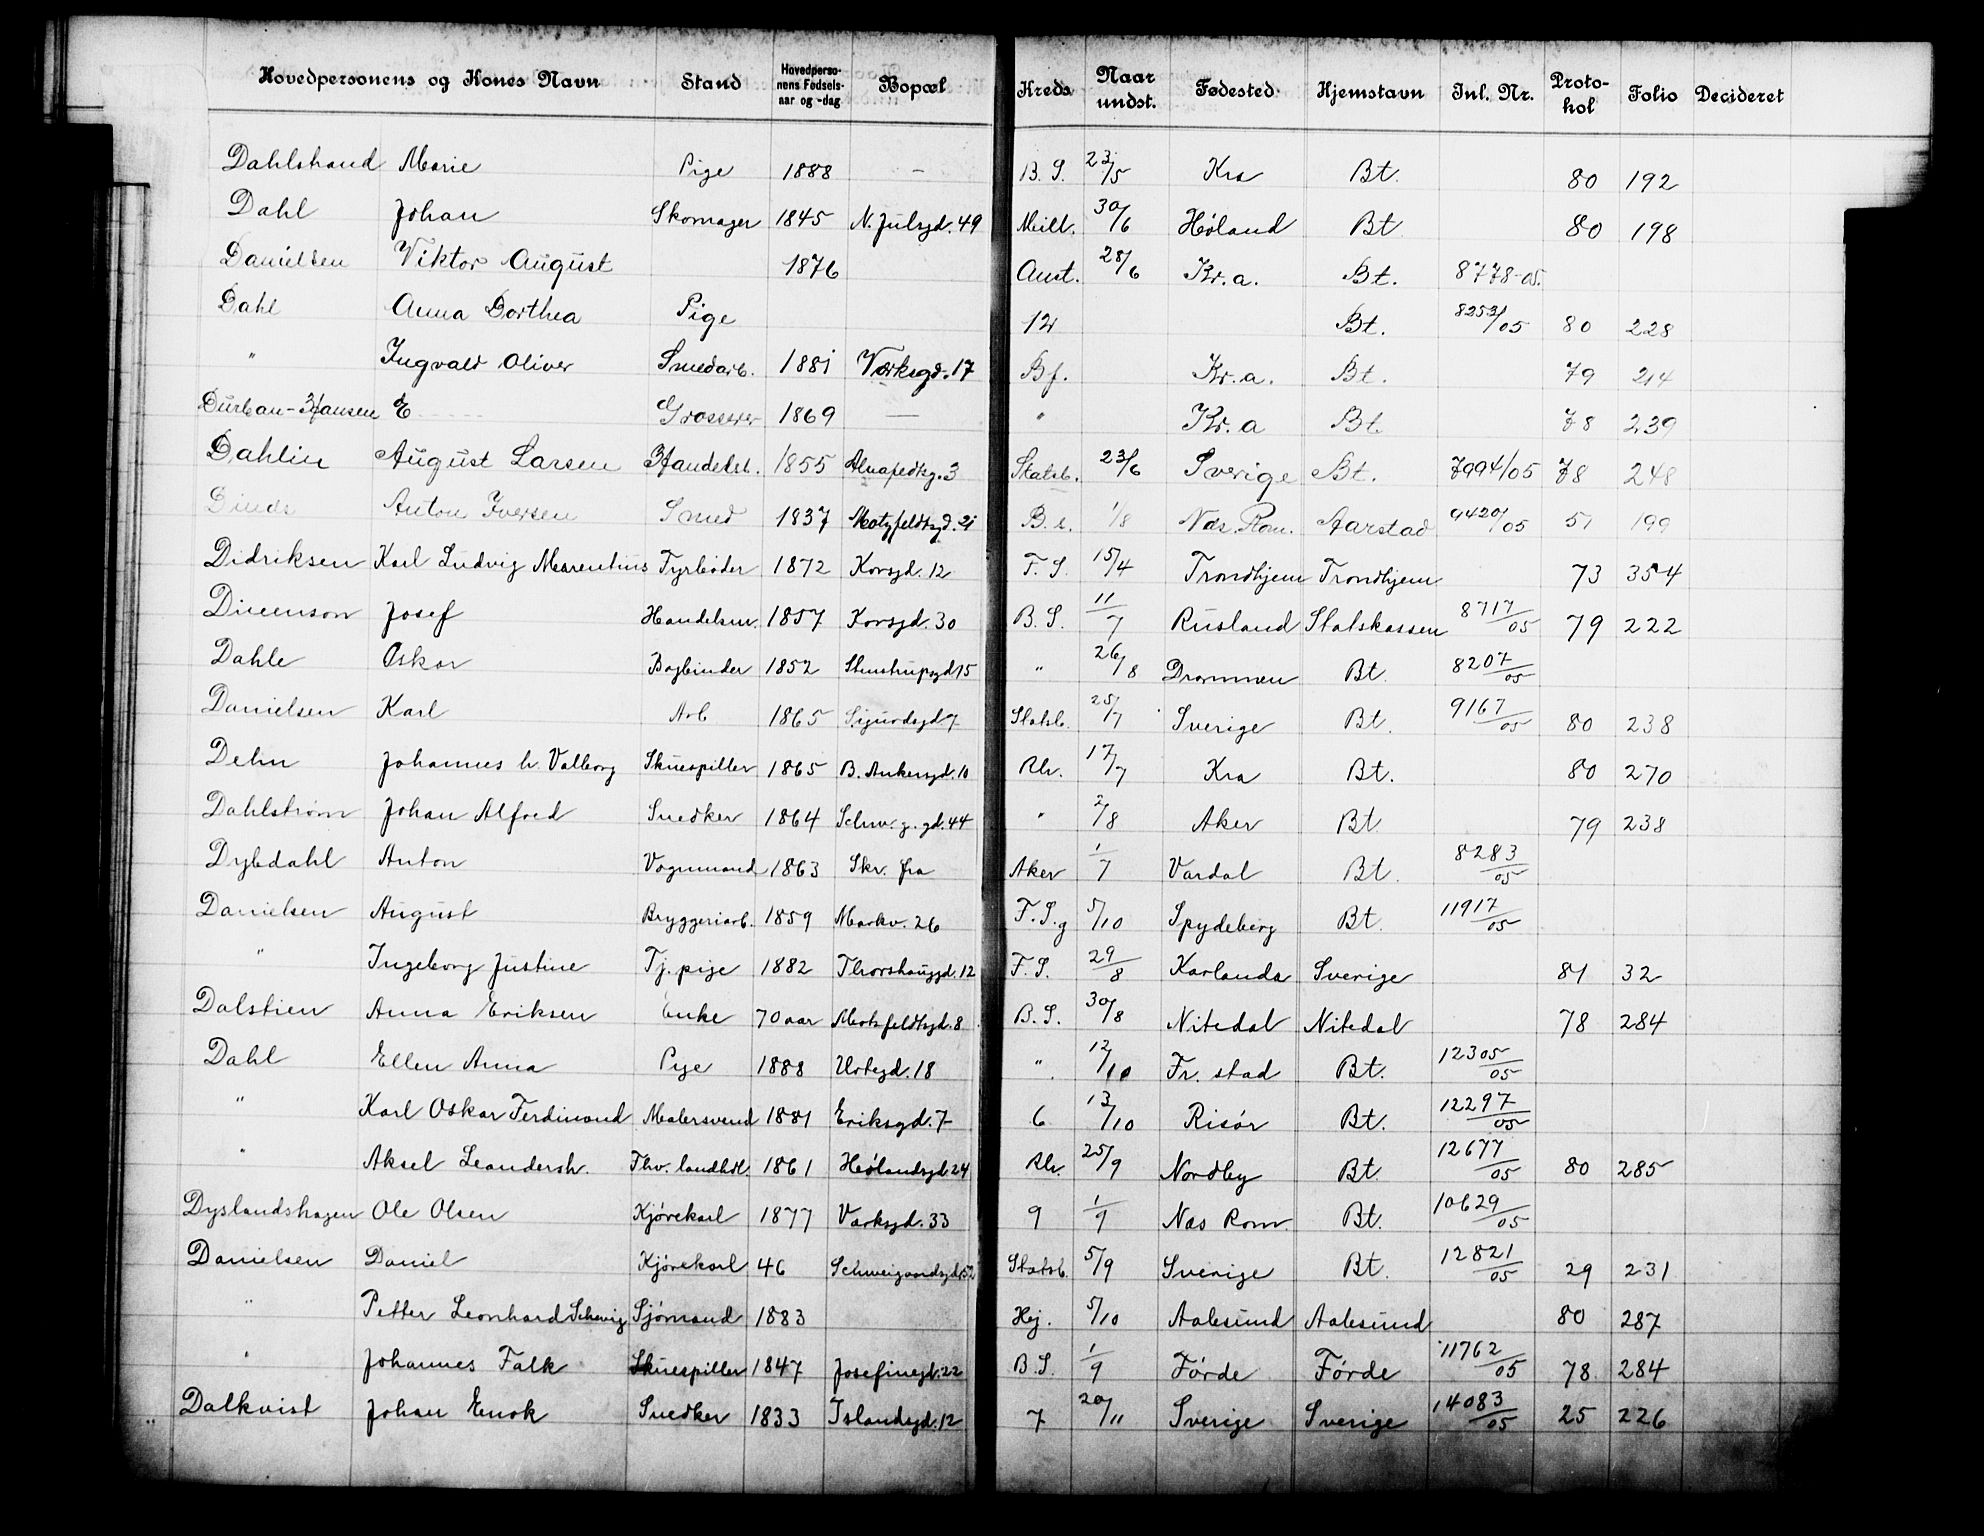 Hovedpersonens og Kones Navn Stand Hovedpersonens Fødselsaar og -dag Bopæl Kreds Naar undst. Fødested Hjemstavn Inl. Nr. Protokol Folio Decideret
Dahlstrand Marie Pige 1888 – B. S. 23/5 Kra Bt. 80 192
Dahl Johan Skomager 1845 N. Julsgd. 49 Meill. 30/6 Høland Bt 80 198
Danielsen Viktor August 1876 Aust. 28/6 Kr.a. Bt. 8778-05.
Dahl Anna Dorthea Pige 12 Bt. 8253/05 80 228
" Ingvald Oliver Smedarb. 1881 Værksgd. 17 Bf. Kr.a. Bt. 79 214
Durban-Hansen E Grosserer 1869 — " Kr.a Bt 78 239
Dahlin August Larsen Handelsb. 1855 Statsb. 23/6 Sverige Bt. 7994/05 78 248
Anton Iversen Smed 1837 Motzfeldtsgd. 21 B. s. 1/8 Næs Rom. Aarstad 9420/05 51 199
Didriksen Karl Ludvig Marentius Fyrbøder 1872 Korsgd. 12 F. S. 15/4 Trondhjem Trondhjem 73 354
Josef Handelsm. 1857 Korsgd. 30 B. S. 11/7 Rusland Statskassen 8717/05 79 222
Dahle Oskar Bogbinder 1852 Stenstrupsgd 15 " 26/8 Drammen Bt. 8207/05
Danielsen Karl Arb 1865 Sigurdsgd. 7 Statsb. 25/7 Sverige Bt. 9167/05 80 238
Dehn Johannes h. Valborg Skuespiller 1865 B. Ankersgd. 10 Rh. 17/7 Kra Bt. 80 270
Dahlstrøm Johan Alfred Snedker 1864 Schw. g. gd. 44 " 2/8 Aker Bt 79 238
Dybdahl Anton Vognmand 1863 Skr. fra Aker 1/7 Vardal Bt. 8283/05
Danielsen August Bryggeriarb. 1859 Markv. 26 F. S. g 5/10 Spydeberg Bt. 11917/05
" Ingeborg Justine Tj. pige 1882 Thorshauggd. 12 F. S. 29/8 Karlanda Sverige 81 32
Dalstien Anna Eriksen Enke 70 aar Motzfeldtsgd. 8 B. S. 30/8 Nitedal Nitedal 78 284
Dahl Ellen Anna Pige 1888 Urtegd. 18 " 12/10 Fr. stad Bt. 12305/05
" Karl Oskar Ferdinand Malersvend 1881 Eriksgd. 7 6 13/10 Risør Bt. 12297/05
" Aksel Leandersh. Fhv. landhdl. 1861 Hølandsgd. 24 Rh. 25/9 Nordby Bt. 12677/05 80 285
Dyslandshagen Ole Olsen Kjørekarl 1877 Værksgd. 33 9 1/9 Næs Rom. Bt. 10629/05
Danielsen Daniel Kjørekarl 46 Schweigaardsgd. 52 Statsb. 5/9 Sverige Bt. 12821/05 29 231
" Petter Leonhard Sjømand 1883 Hej. 5/10 Aalesund Aalesund 80 287
" Johannes Falk Skuespiller 1847 Josefinegd. 22 B. S. 1/9 Førde Førde 11762/05 78 284
Dalkvist Johan Enok Snedker 1833 Islandsgd. 12 7 20/11 Sverige Sverige 14083/05 25 226